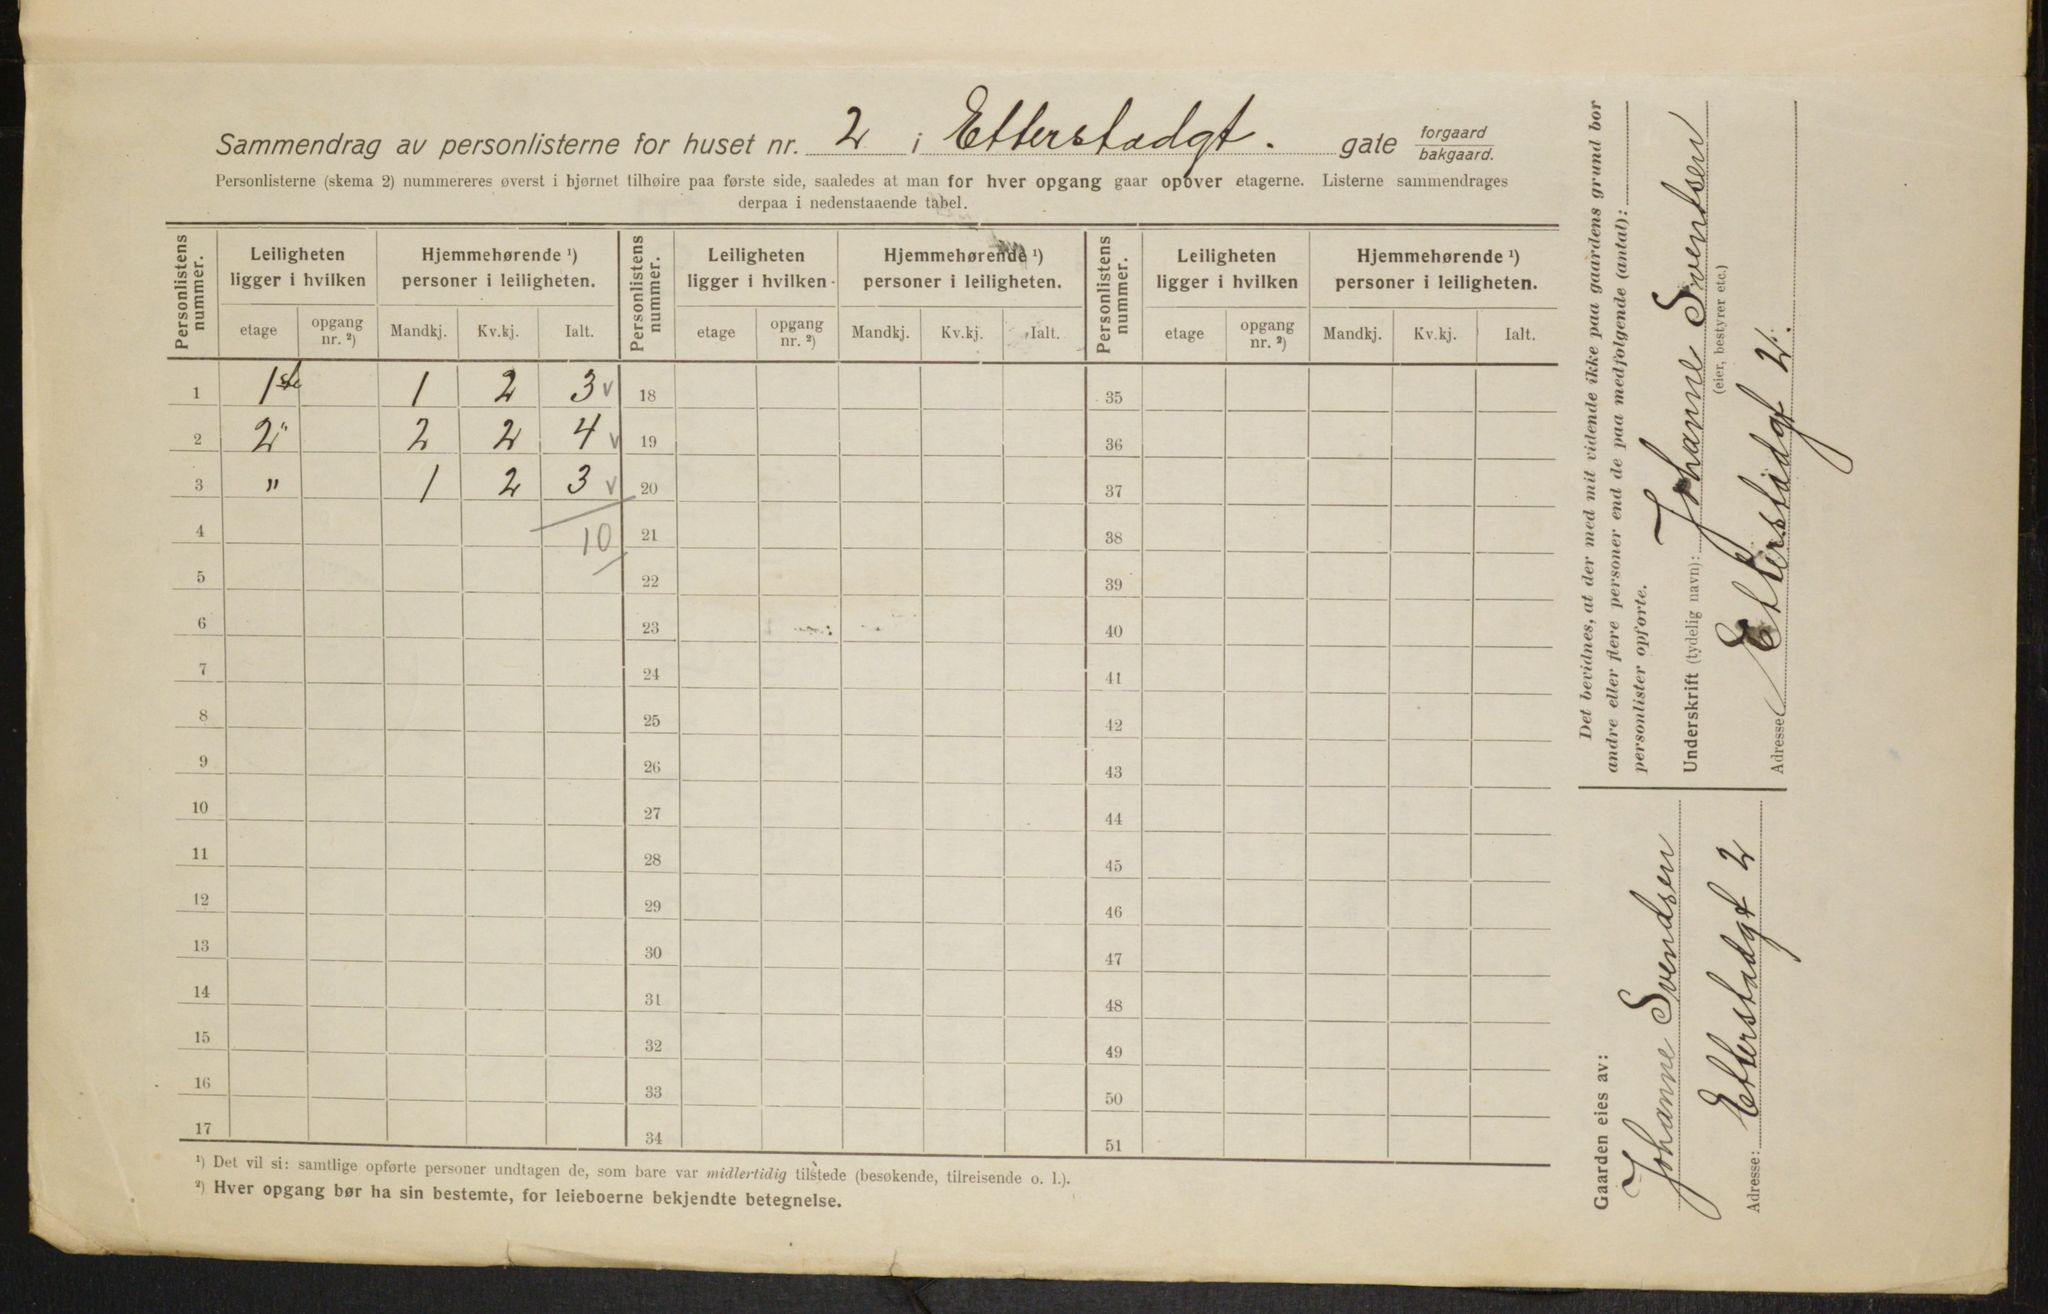 Sammendrag av personlisterne for huset nr. 2 i Etterstadgt. gate forgaard / bakgaard.
Personlisterne (skema 2) nummereres øverst i hjørnet tilhøire paa første side, saaledes at man for hver opgang gaar opover etagerne. Listerne sammendrages
derpaa i nedenstaaende tabel.
Personlistens nummer. Leiligheten ligger i hvilken Hjemmehørende ¹) personer i leiligheten. Personlistens nummer. Leiligheten ligger i hvilken Hjemmehørende ¹) personer i leiligheten. Personlistens nummer. Leiligheten ligger i hvilken Hjemmehørende ¹) personer i leiligheten.
etage opgang nr. ²) Mandkj. Kv.kj. Ialt. etage opgang nr. ²) Mandkj. Kv.kj. Ialt. etage opgang nr. ²) Mandkj. Kv.kj. Ialt.
1 1ste 1 2 3 v 18 35
2 2" 2 2 4 v 19 36
3 " 1 2 3 v 20 37
4 10 21 38
5 22 39
6 23 40
7 24 41
8 25 42
9 26 43
10 27 44
11 28 45
12 29 46
13 30 47
14 31 48
15 32 49
16 33 50
17 34 51
¹) Det vil si: samtlige opførte personer undtagen de, som bare var midlertidig tilstede (besøkende, tilreisende o. l.).
²) Hver opgang bør ha sin bestemte, for leieboerne bekjendte betegnelse.
Det bevidnes, at der med mit vidende ikke paa gaardens grund bor
andre eller flere personer end de paa medfølgende (antal):
personlister opførte.
Underskrift (tydelig navn): Johanne Sventsen
(eier, bestyrer etc.)
Adresse Etterstadgt 2.
Gaarden eies av:
Johanne Svendsen
Adresse: Etterstadgt 2